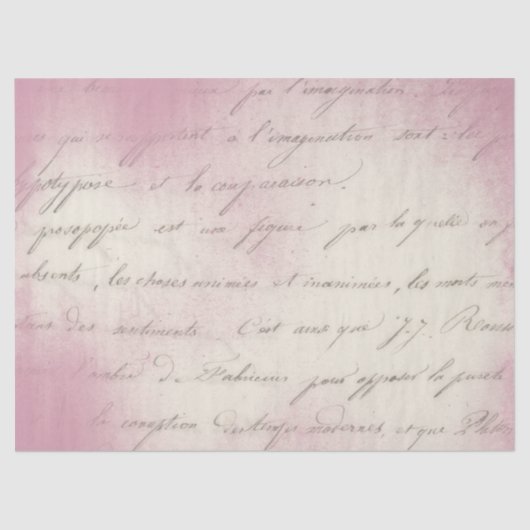 par l'imagination. 
qui se rapportent à l'imagination sont: les
hypotypose et la comparaison.
prosopopée est une figure par laquelle on
absents, les choses animées et inanimées, les morts
des sentiments. C'est ainsi que J.J. Rouss
l'ombre de Fabricius pour opposer la pureté
la corruption des temps modernes, et que